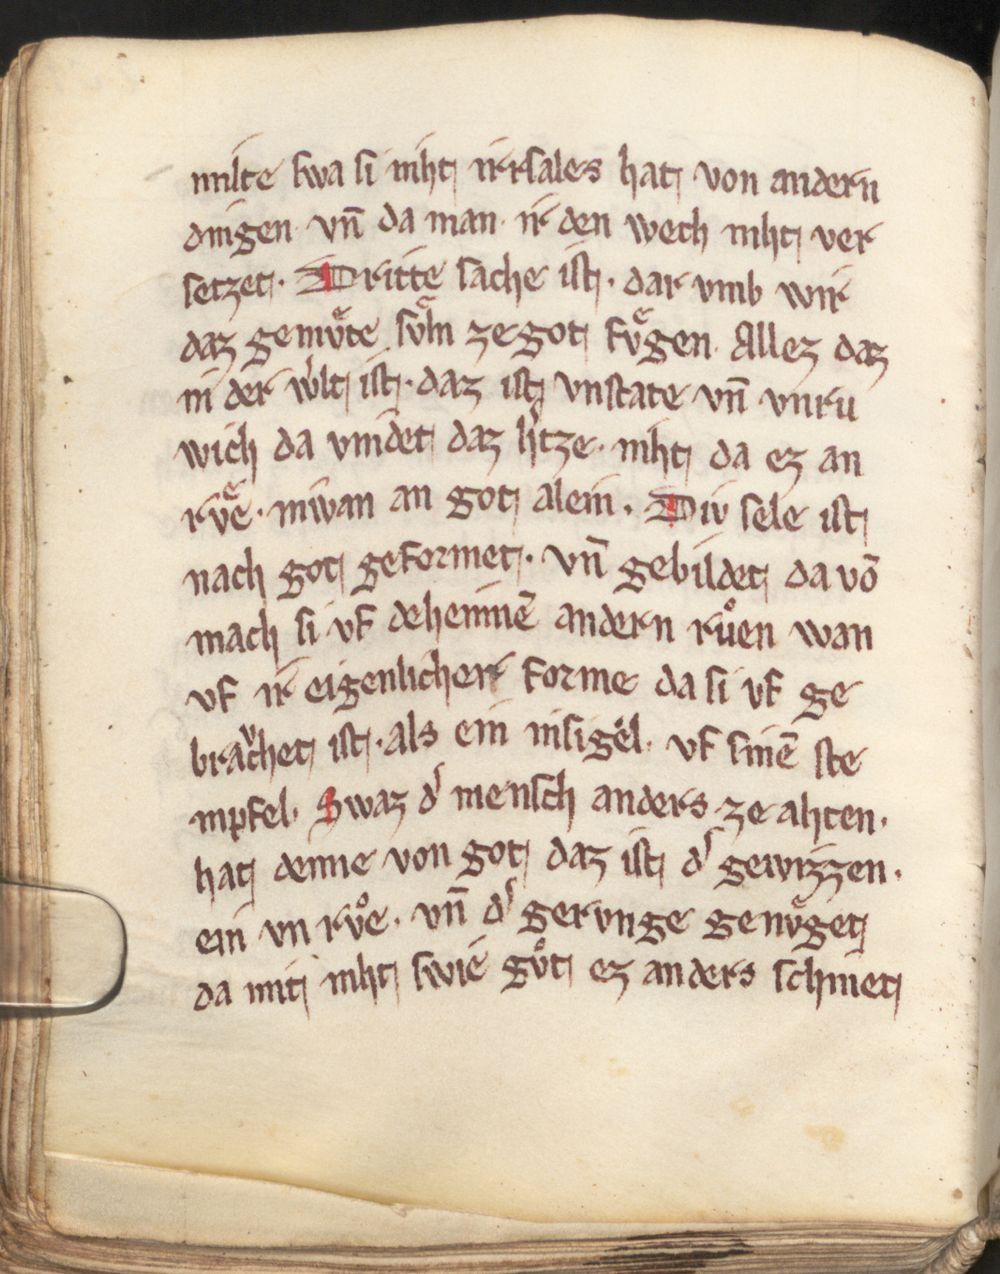 milte swa si niht irrsales hat von andern
dingen vn̄ da man ir den wech niht ver
setzet. Dritte sache ist. dar vmb wir
daz gemvͤte svͤln zegot fvͤgen. Allez daz
in der w̾lt ist. daz ist vnstate vn̄ vnru
wich da vindet daz h̾tze. niht da ez an
rvͤe. niwan an got alein. Div sele ist
nach got geformet. vn̄ gebildet da vō
mach si vf deheinnē andern ruͦen wan
vf ir eigenlicher forme da si vf ge
bravͤchet ist. als ein insigel. vf sinē ste
mpfel. Swaz d̾ mensch anders ze ahten.
hat denne von got daz ist d̾ gewizzen.
ein vn rvͦe. vn̄ d̾ gervnge genvͤget
da mit niht swie gvͦt ez anders schinet